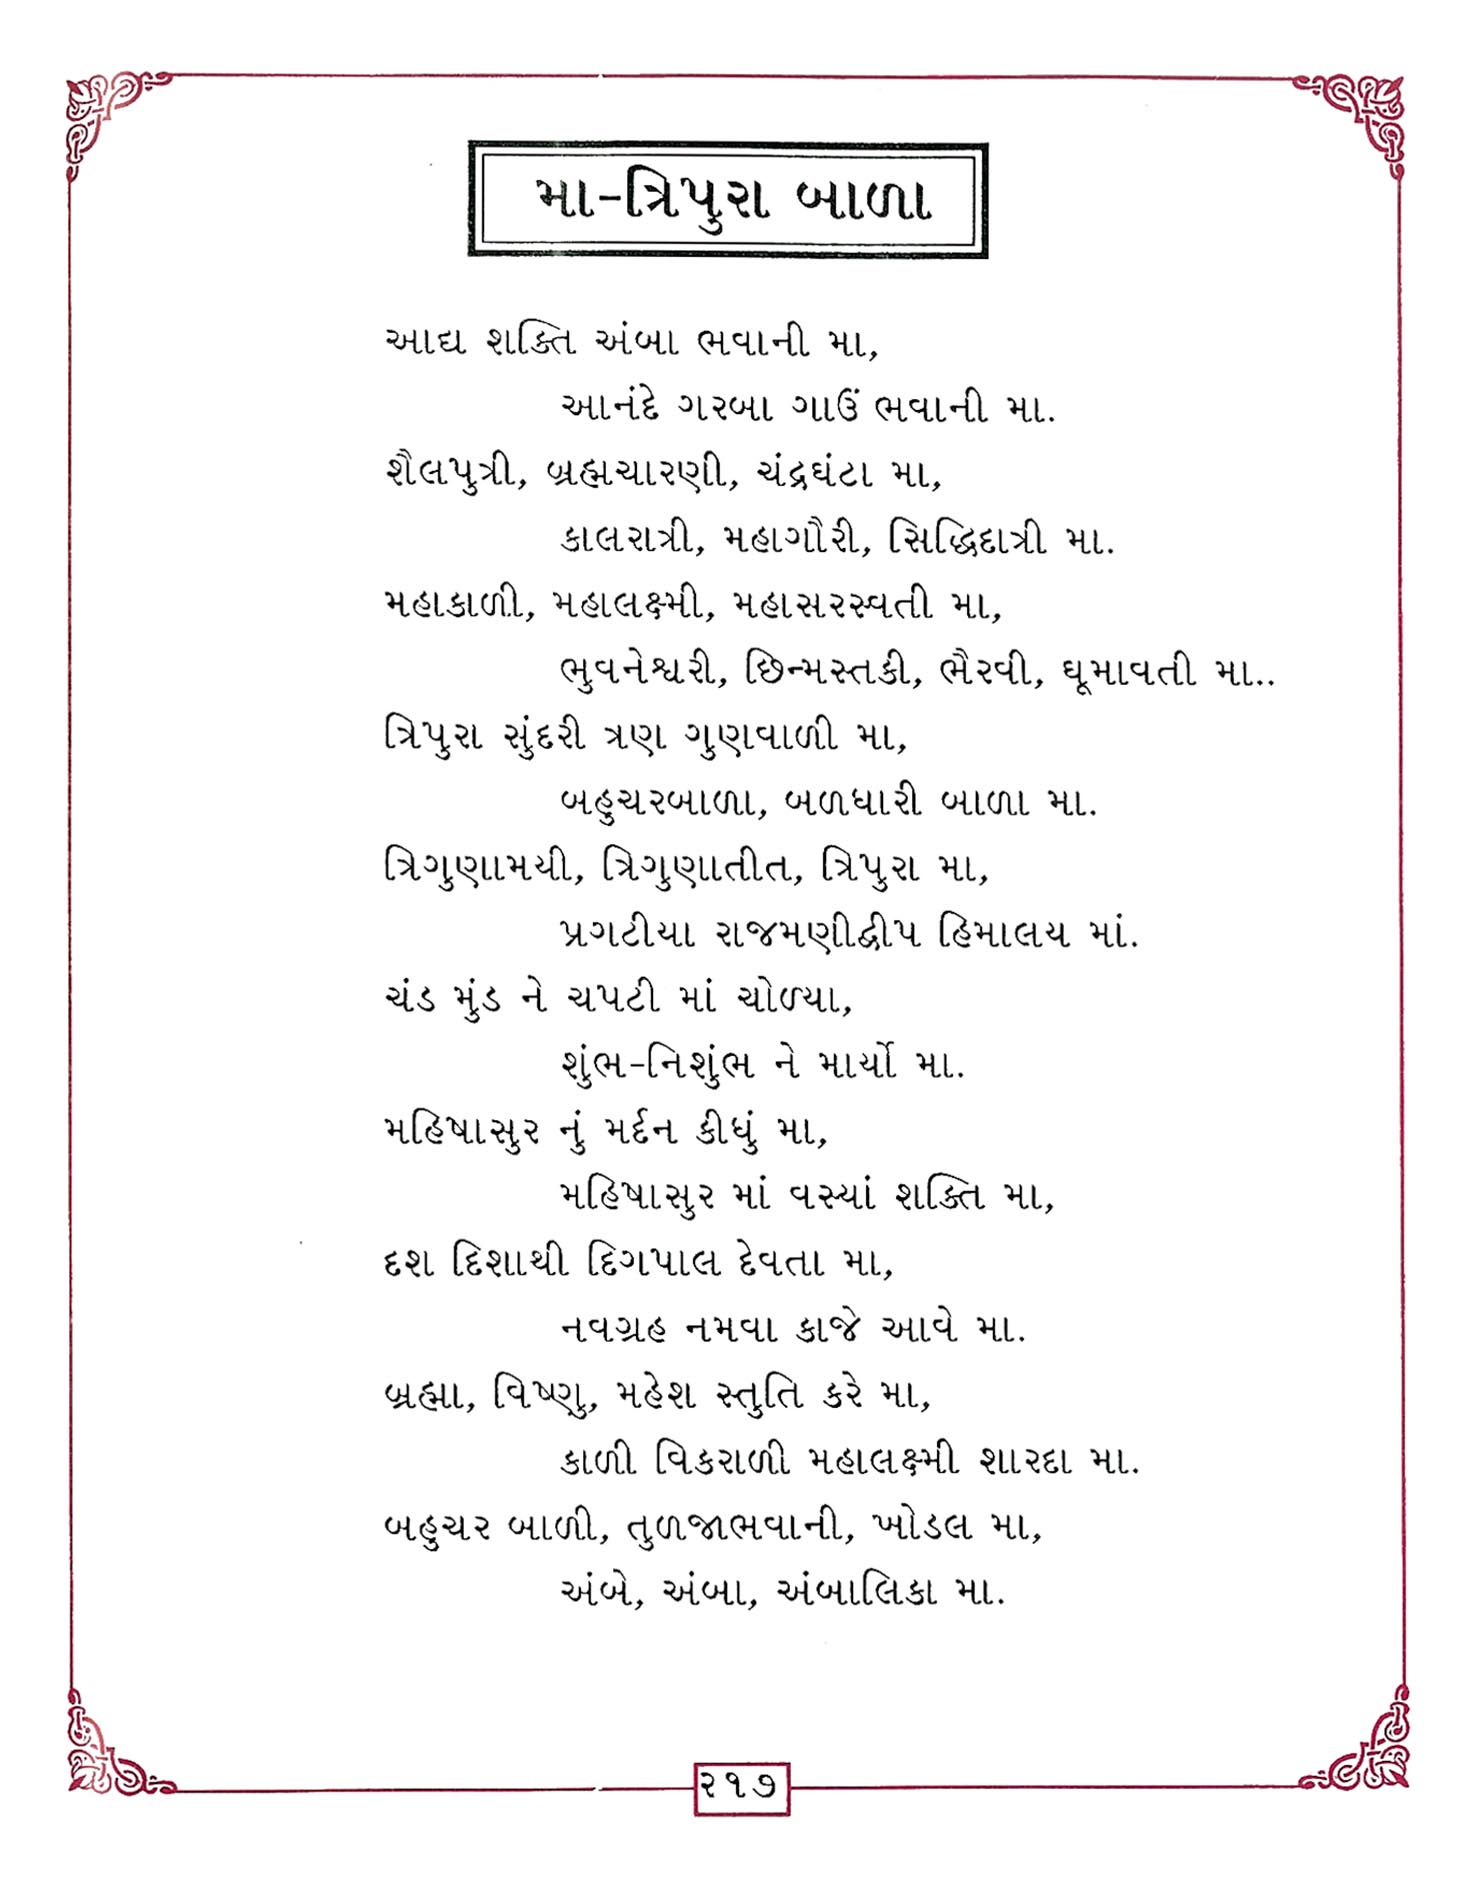 મા-ત્રિપુરા બાળા
આદ્ય શક્તિ અંબા ભવાની મા,
આનંદે ગરબા ગાઉં ભવાની મા.
શૈલપુત્રી, બ્રહ્મચારણી, ચંદ્રઘંટા મા,
કાલરાત્રી, મહાગૌરી, સિદ્ધિદાત્રી મા.
મહાકાળી, મહાલક્ષ્મી, મહાસરસ્વતી મા,
ભુવનેશ્વરી, છિન્મસ્તકી, ભૈરવી, ઘૂમાવતી મા..
ત્રિપુરા સુંદરી ત્રણ ગુણવાળી મા,
બહુચરબાળા, બળધારી બાળા મા.
ત્રિગુણામયી, ત્રિગુણાતીત, ત્રિપુરા મા,
પ્રગટીયા રાજમણીદ્વીપ હિમાલય માં.
ચંડ મુંડ ને ચપટી માં ચોળ્યા,
શુંભ-નિશુંભ ને માર્યો મા.
મહિષાસુર નું મર્દન કીધું મા,
મહિષાસુર માં વસ્યાં શક્તિ મા,
દશ દિશાથી દિગપાલ દેવતા મા,
નવગ્રહ નમવા કાજે આવે મા.
બ્રહ્મા, વિષ્ણુ, મહેશ સ્તુતિ કરે મા,
કાળી વિકરાળી મહાલક્ષ્મી શારદા મા.
બહુચર બાળી, તુળજાભવાની, ખોડલ મા,
અંબે, અંબા, અંબાલિકા મા.
૨૧૭